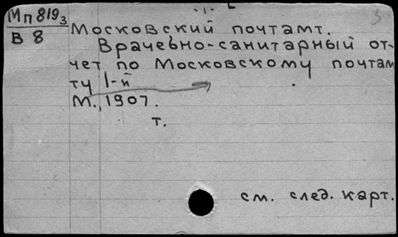 Мп 819₃
В 8
Московский почтамт.
Врачебно-санитарный от-
чет по Московскому почтам
ту 1-й
М., 1907.
т.
см. след. карт.